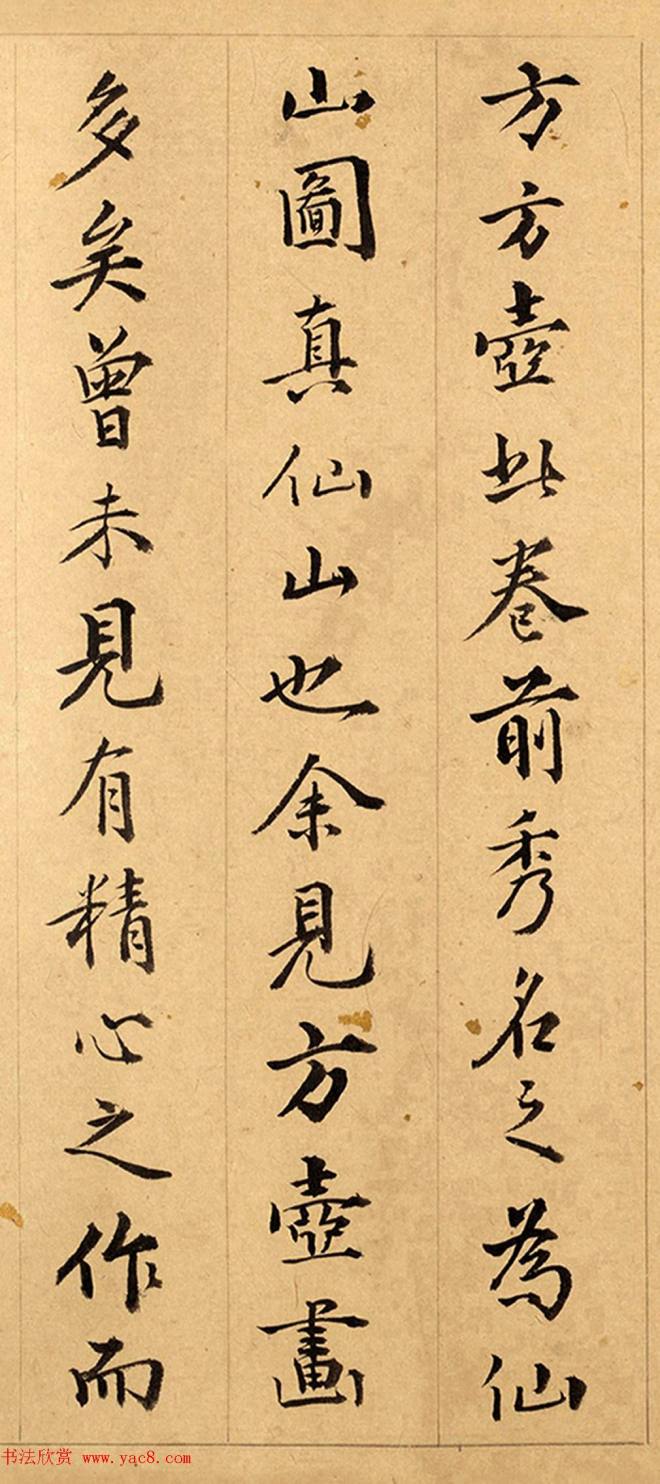 方方壺此卷前秀名之為仙
山圖真仙山也余見方壺畫
多矣曾未見有精心之作而
书法欣赏 www.yac8.com